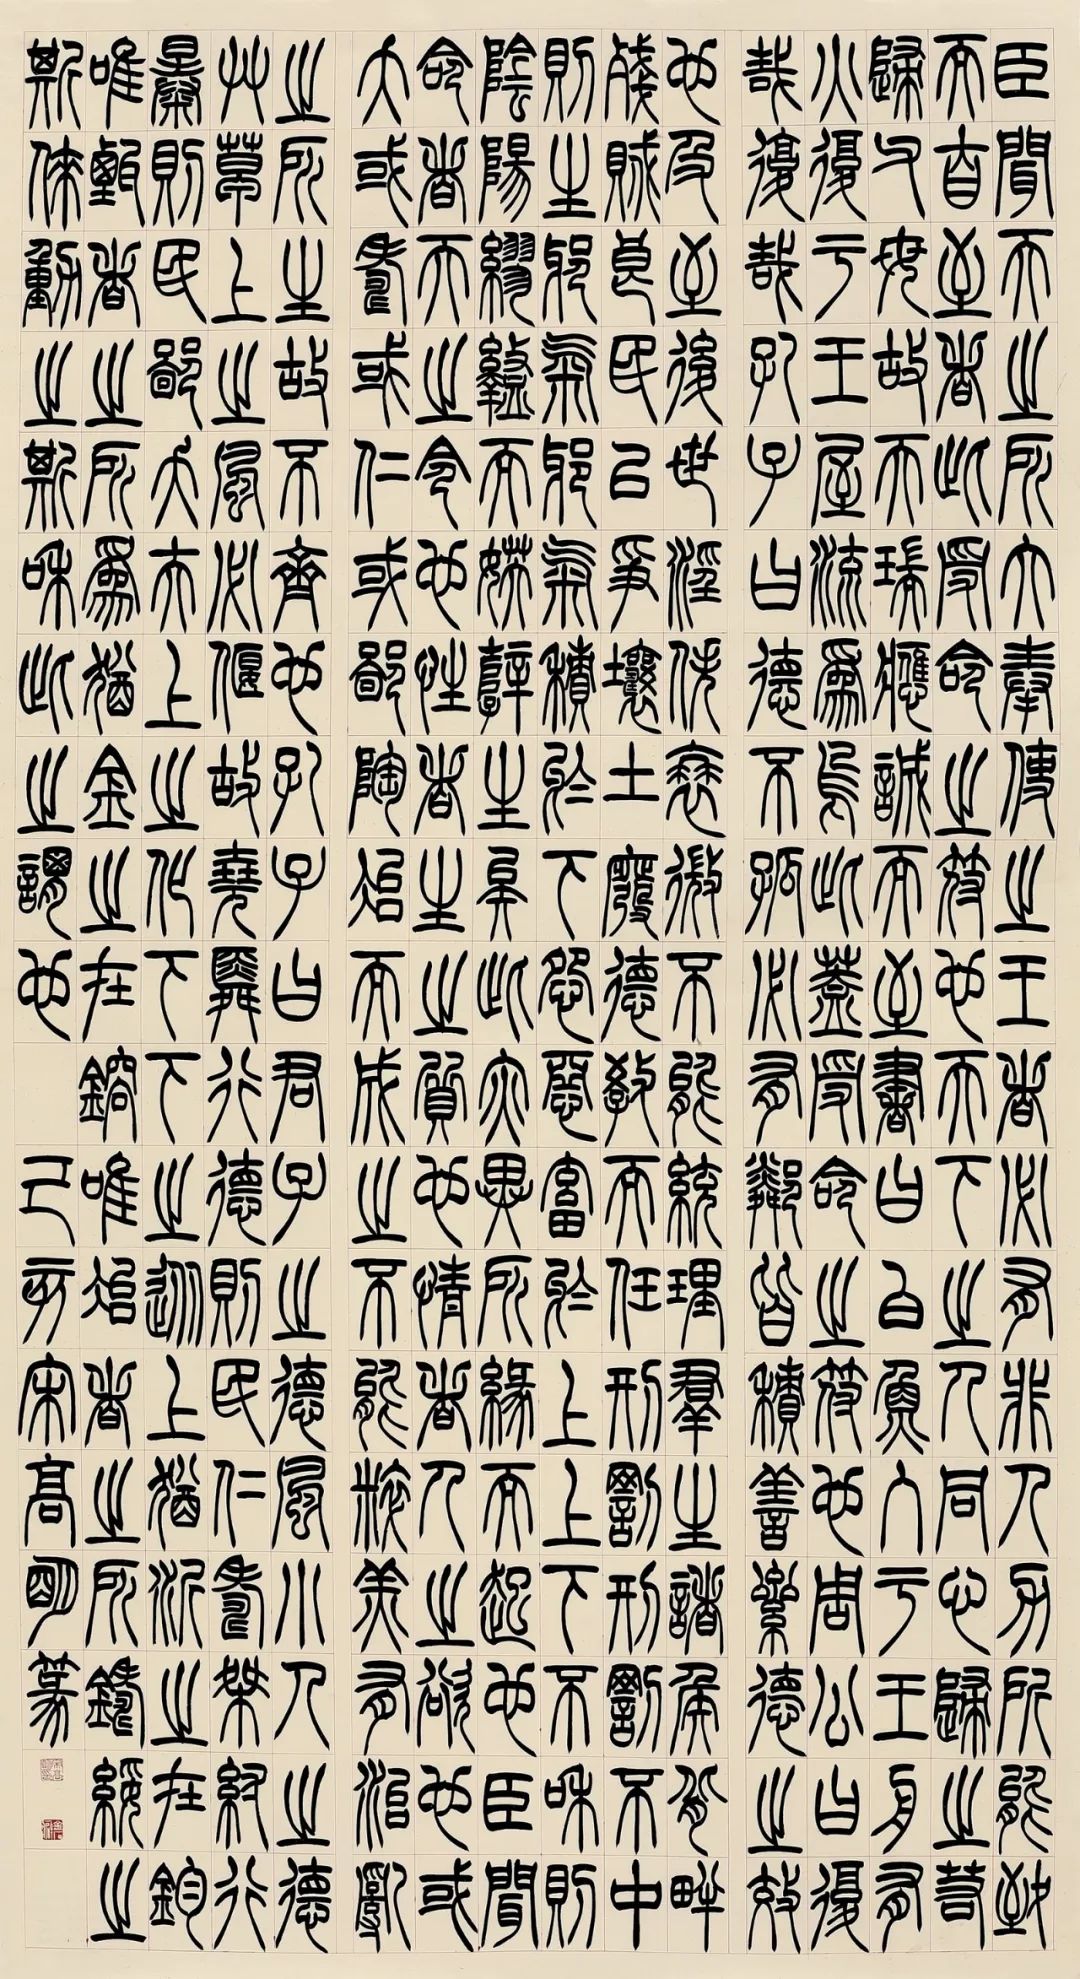 臣聞天之所大奉使之王者必有非人力所能致
而自至者此受命之符也天下之人同心歸之若
歸父母故天瑞應誠而至書曰白魚入于王舟有
火復于王屋流爲烏此蓋受命之符也周公曰復
哉復哉孔子曰德不孤必有鄰皆積善絫德之效
也及至後世淫佚衰微不能統理羣生諸侯背畔
殘賊良民以爭壤土廢德教而任刑罰刑罰不中
則生邪氣邪氣積於下怨惡畜於上上下不和則
陰陽繆盭而妖孽生矣此災異所緣而起也臣聞
命者天之令也性者生之質也情者人之欲也或
夭或壽或仁或鄙陶冶而成之不能粹美有治亂
之所生故不齊也孔子曰君子之德風小人之德
艸草上之風必偃故堯舜行德則民仁壽桀紂行
暴則民鄙夭夫上之化下下之從上猶泥之在鈞
唯甄者之所爲猶金之在鎔唯冶者之所鑄綏之
斯倈動之斯和此之謂也 己亥宋高明篆